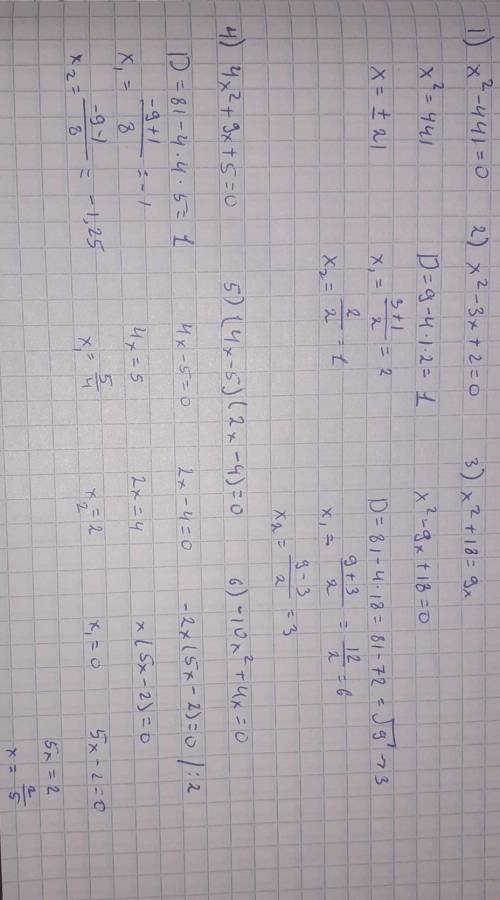 1) x² - 441 = 0
x² = 441
x = ± 21
2) x² - 3x + 2 = 0
D = 9 - 4 · 1 · 2 = 1
x₁ = (3+1)/2 = 2
x₂ = 2/2 = 1
3) x² + 18 = 9x
x² - 9x + 18 = 0
D = 81 - 4 · 18 = 81 - 72 = √9 → 3
x₁ = (9+3)/2 = 12/2 = 6
x₂ = (9-3)/2 = 3
4) 4x² + 9x + 5 = 0
D = 81 - 4 · 4 · 5 = 1
x₁ = (-9+1)/8 = -1
x₂ = (-9-1)/8 = -1,25
5) (4x - 5)(2x - 4) = 0
4x - 5 = 0 2x - 4 = 0
4x = 5 2x = 4
x₁ = 5/4 x₂ = 2
6) -10x² + 4x = 0
-2x(5x - 2) = 0 | : 2
x(5x - 2) = 0
x₁ = 0 5x - 2 = 0
5x = 2
x = 2/5